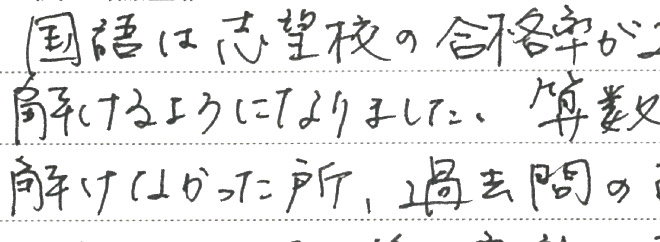 国語は志望校の合格率が
解けるようになりました。算数
解けなかった所、過去問の